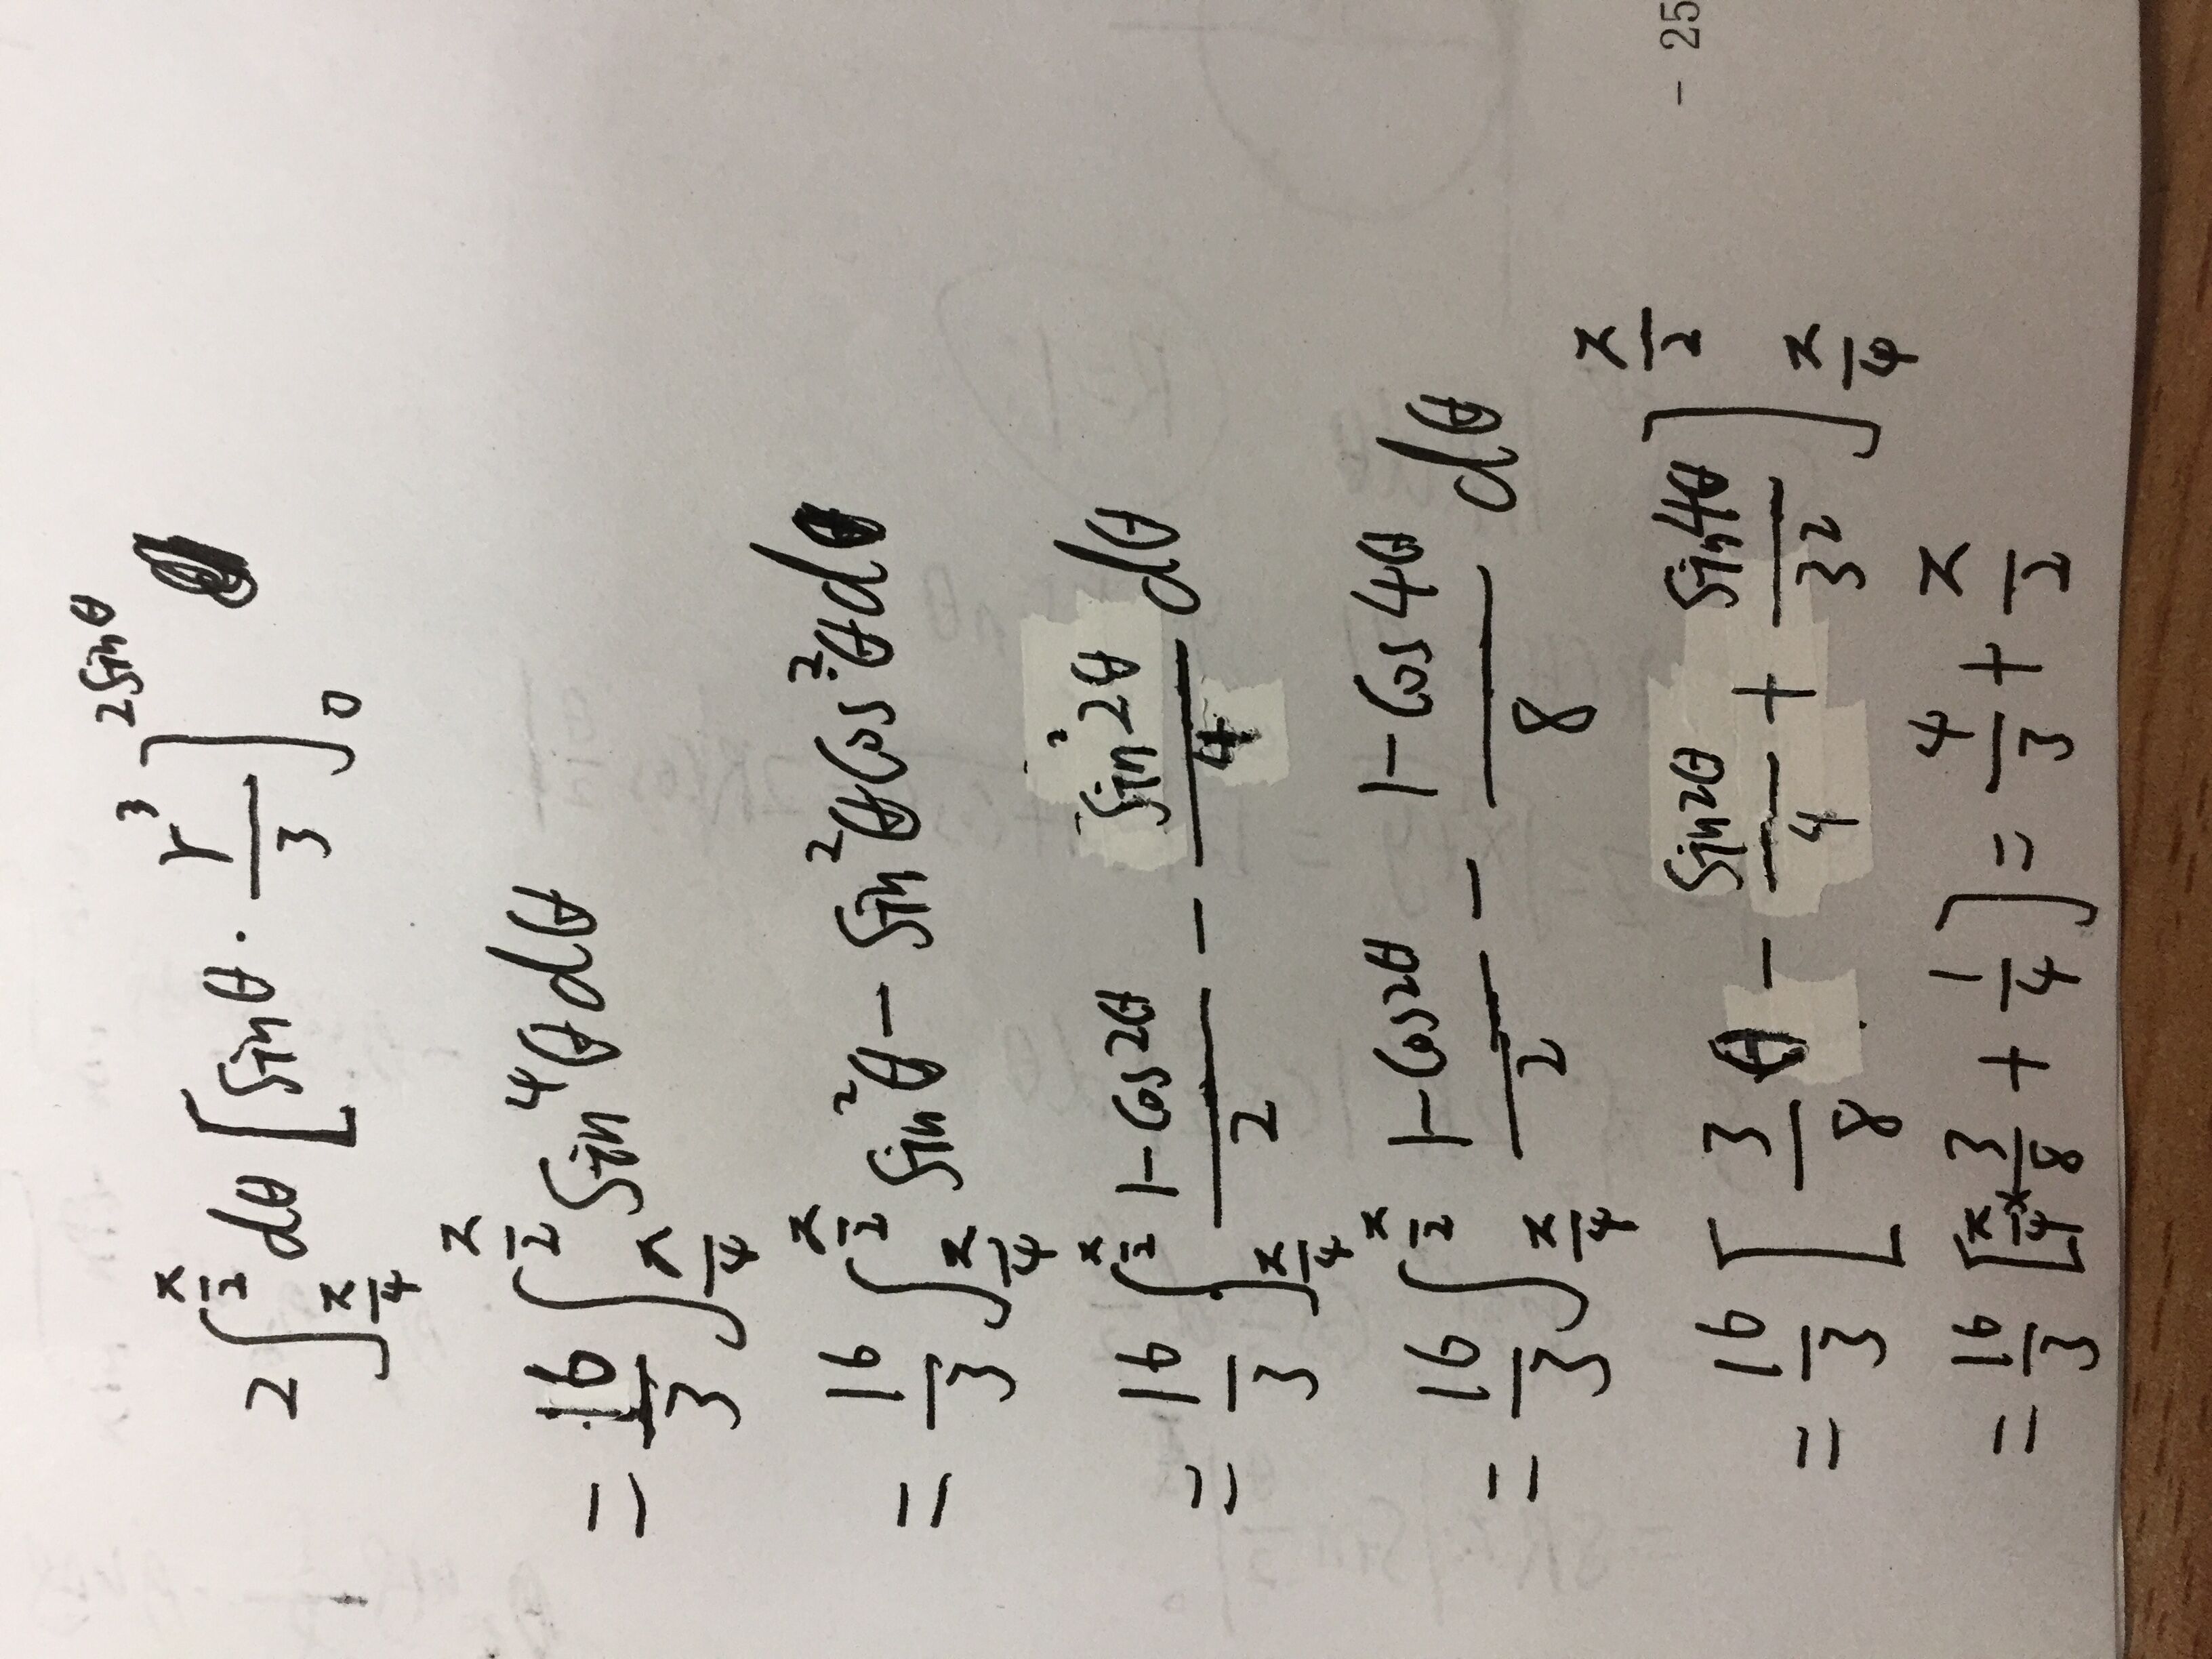 2∫_{π/4}^{π/2} dθ [sinθ · r³/3]_0^{2sinθ}
= 16/3 ∫_{π/4}^{π/2} sin⁴θ dθ
= 16/3 ∫_{π/4}^{π/2} sin²θ − sin²θ cos²θ dθ
= 16/3 ∫_{π/4}^{π/2} (1−cos2θ)/2 − (sin²2θ)/4 dθ
= 16/3 ∫_{π/4}^{π/2} (1−cos2θ)/2 − (1−cos4θ)/8 dθ
= 16/3 [3/8 θ − sin2θ/4 + sin4θ/32]_{π/4}^{π/2}
= 16/3 [π/4 × 3/8 + 1/4] = 4/3 + π/2
- 25